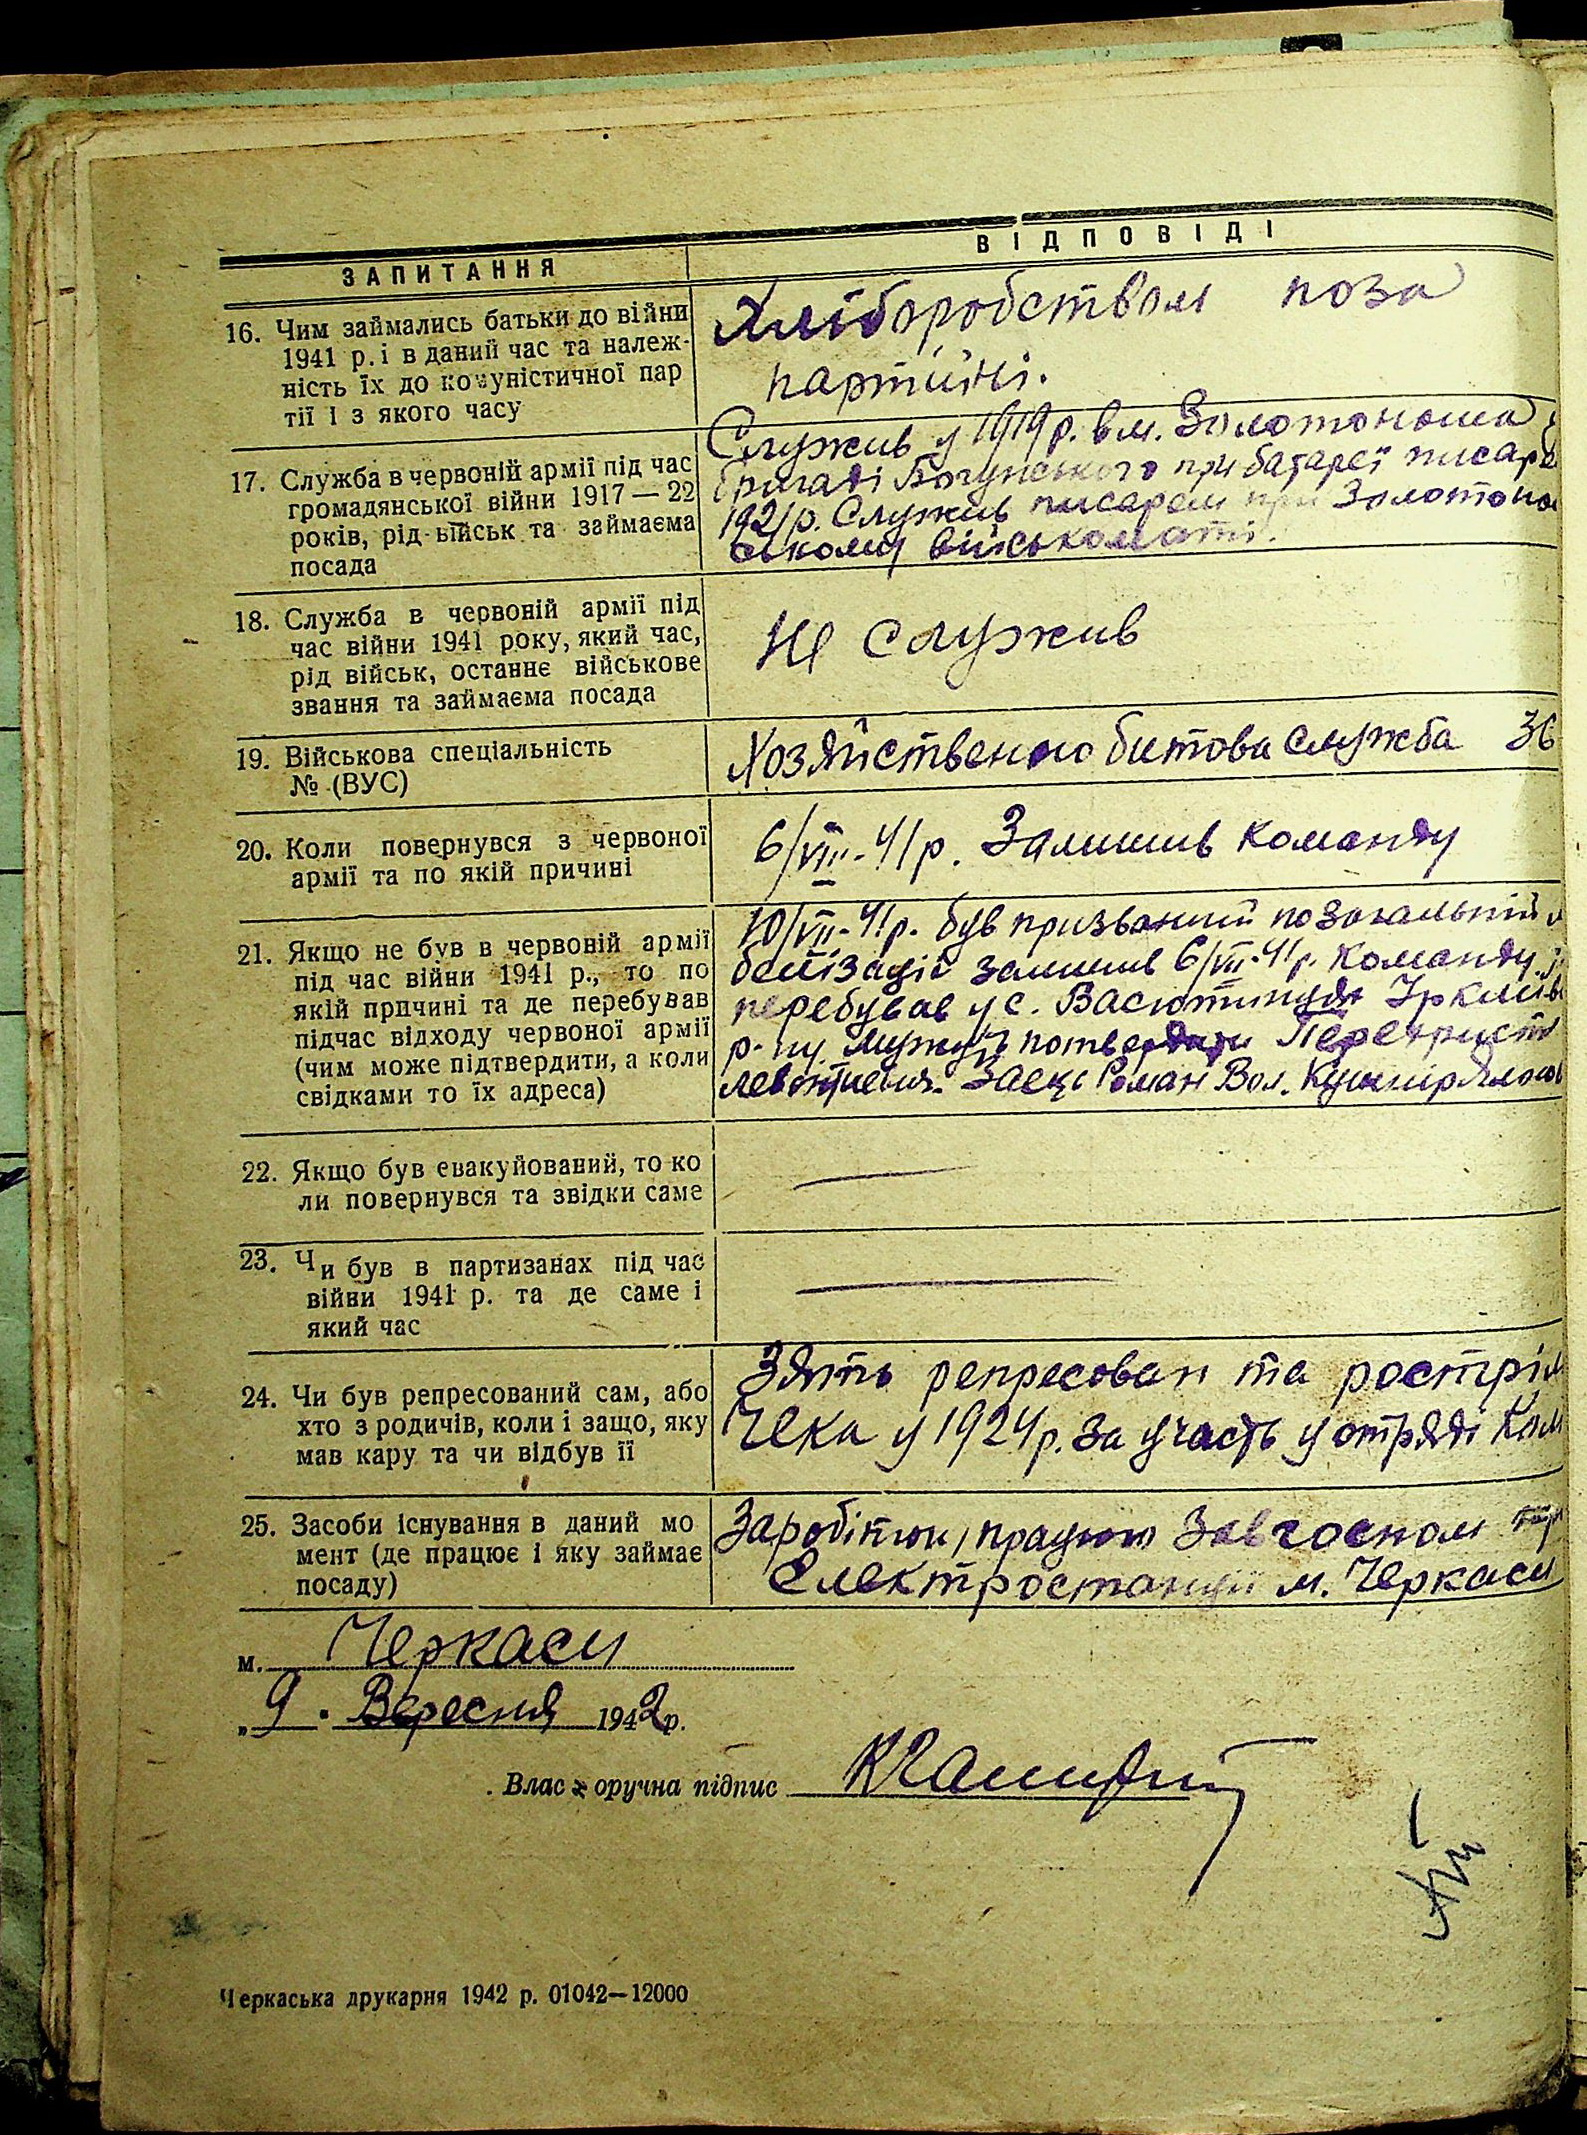 ЗАПИТАННЯ
ВІДПОВІДІ
16. Чим займались батьки до війни
1941 р. і в даний час та належ-
ність їх до комуністичної пар
тії і з якого часу
Хліборобством поза
партійні.
17. Служба в червоній армії під час
громадянської війни 1917—22
років, рід військ та займаєма
посада
Служив у 1919 р. в м. Золотоноша
бригаді Богунського при батареї писар
1921 р. Служив писарем при Золотоно
ському військоматі.
18. Служба в червоній армії під
час війни 1941 року, який час,
рід військ, останнє військове
звання та займаєма посада
Не служив
19. Військова спеціальність
№ (ВУС)
Хозяйственно битова служба 36
20. Коли повернувся з червоної
армії та по якій причині
6/VIII-41 р. Залишив команду
21. Якщо не був в червоній армії
під час війни 1941 р., то по
якій причині та де перебував
підчас відходу червоної армії
(чим може підтвердити, а коли
свідками то їх адреса)
10/VII-41 р. був призваний по загальній
білізації залишив 6/VIII-41 р. команду
перебував у с. Васютинця Іркліїв
р-ну можуть потвердити
Заєць Роман Вол. Кушнір
22. Якщо був евакуйований, то ко
ли повернувся та звідки саме
23. Чи був в партизанах під час
війни 1941 р. та де саме і
який час
24. Чи був репресований сам, або
хто з родичів, коли і защо, яку
мав кару та чи відбув її
Зять репресован таростріл
Чека у 1924 р. за участь у отряді
25. Засоби існування в даний мо
мент (де працює і яку займає
посаду)
Заробіток, працюю Завгоспом
Електростанції м. Черкаси
м. Черкаси
„9. Вересня 1942 р.
Влас оручна підпис
Черкаська друкарня 1942 р. 01042—12000